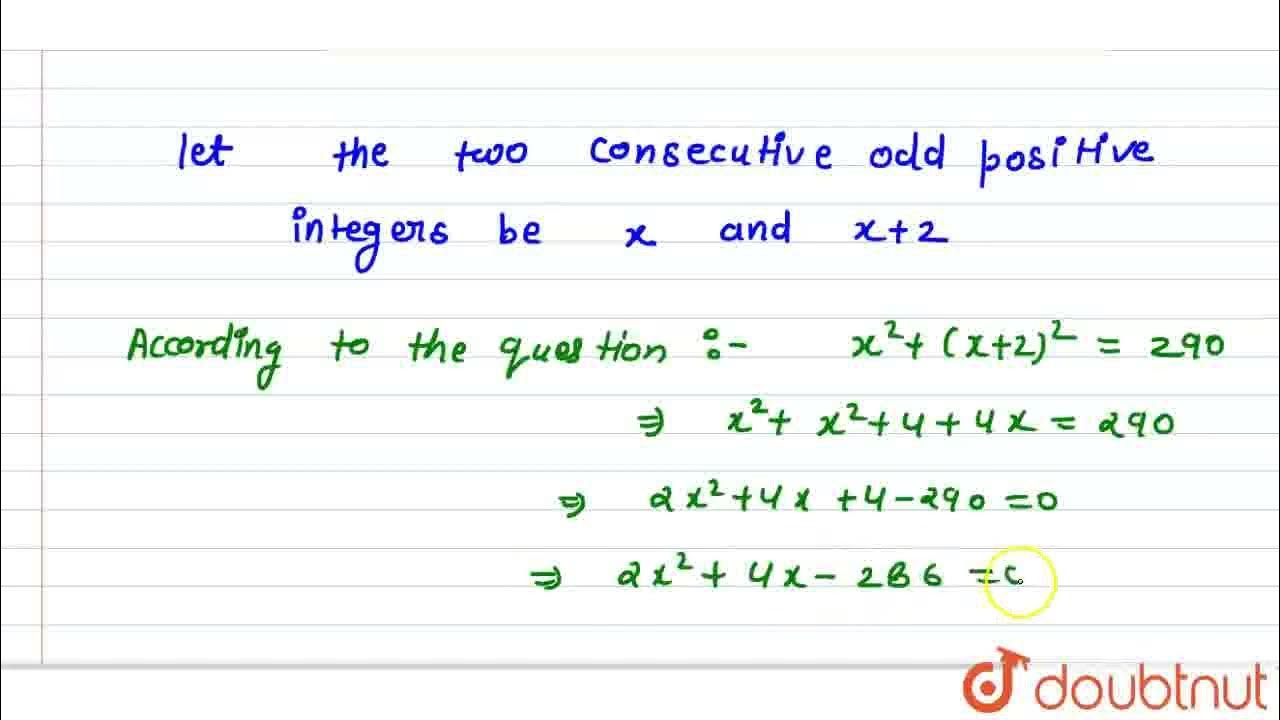 let the two consecutive odd positive
integers be x and x+2
According to the question :- x²+(x+2)² = 290
⇒ x²+ x²+4+4x = 290
⇒ 2x²+4x+4-290=0
⇒ 2x²+4x-286=0
doubtnut